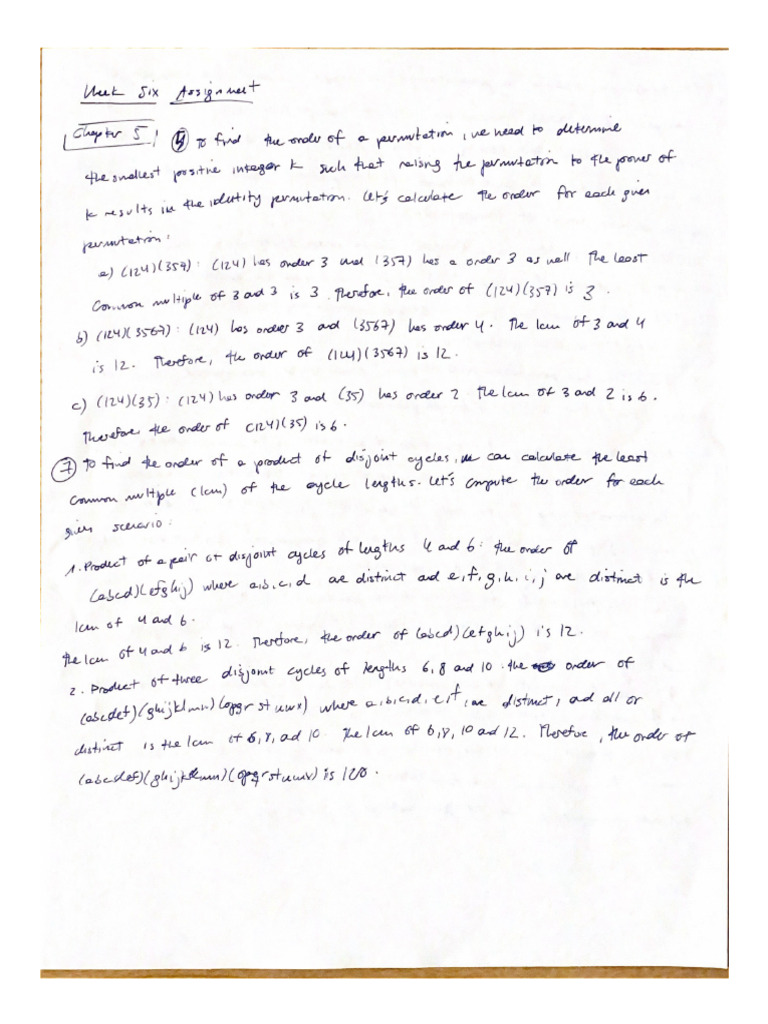 Week Six Assignment
Chapter 5 4 To find the order of a permutation, we need to determine
the smallest positive integer k such that raising the permutation to the power of
k results in the identity permutation. Let's calculate the order for each given
permutation:
a) (124)(357): (124) has order 3 and (357) has a order 3 as well The least
Common multiple of 3 and 3 is 3. Therefore, the order of (124)(357) is 3.
b) (124)(3567): (124) has order 3 and (3567) has order 4. The lcm of 3 and 4
is 12. Therefore, the order of (124)(3567) is 12.
c) (124)(35): (124) has order 3 and (35) has order 2 The lcm of 3 and 2 is 6.
Therefore, the order of (124)(35) is 6.
7 To find the order of a product of disjoint cycles, we can calculate the least
common multiple (lcm) of the cycle lengths. Let's compute the order for each
given scenario:
1. Product of a pair of disjoint cycles of lengths 4 and 6: the order of
(abcd)(efghij) where a,b,c,d are distinct and e,f,g,h,i,j are distinct is the
lcm of 4 and 6.
The lcm of 4 and 6 is 12. Therefore, the order of (abcd)(efghij) is 12.
2. Product of three disjoint cycles of lengths 6, 8 and 10. the order of
(abcdef)(ghijklmn)(opqrstuwx) where a,b,c,d,e,f, are distinct, and all or
distinct is the lcm of 6, 8, and 10. The lcm of 6, 8, 10 and 12. Therefore, the order of
(abcdef)(ghijklmn)(opqrstuwx) is 120.